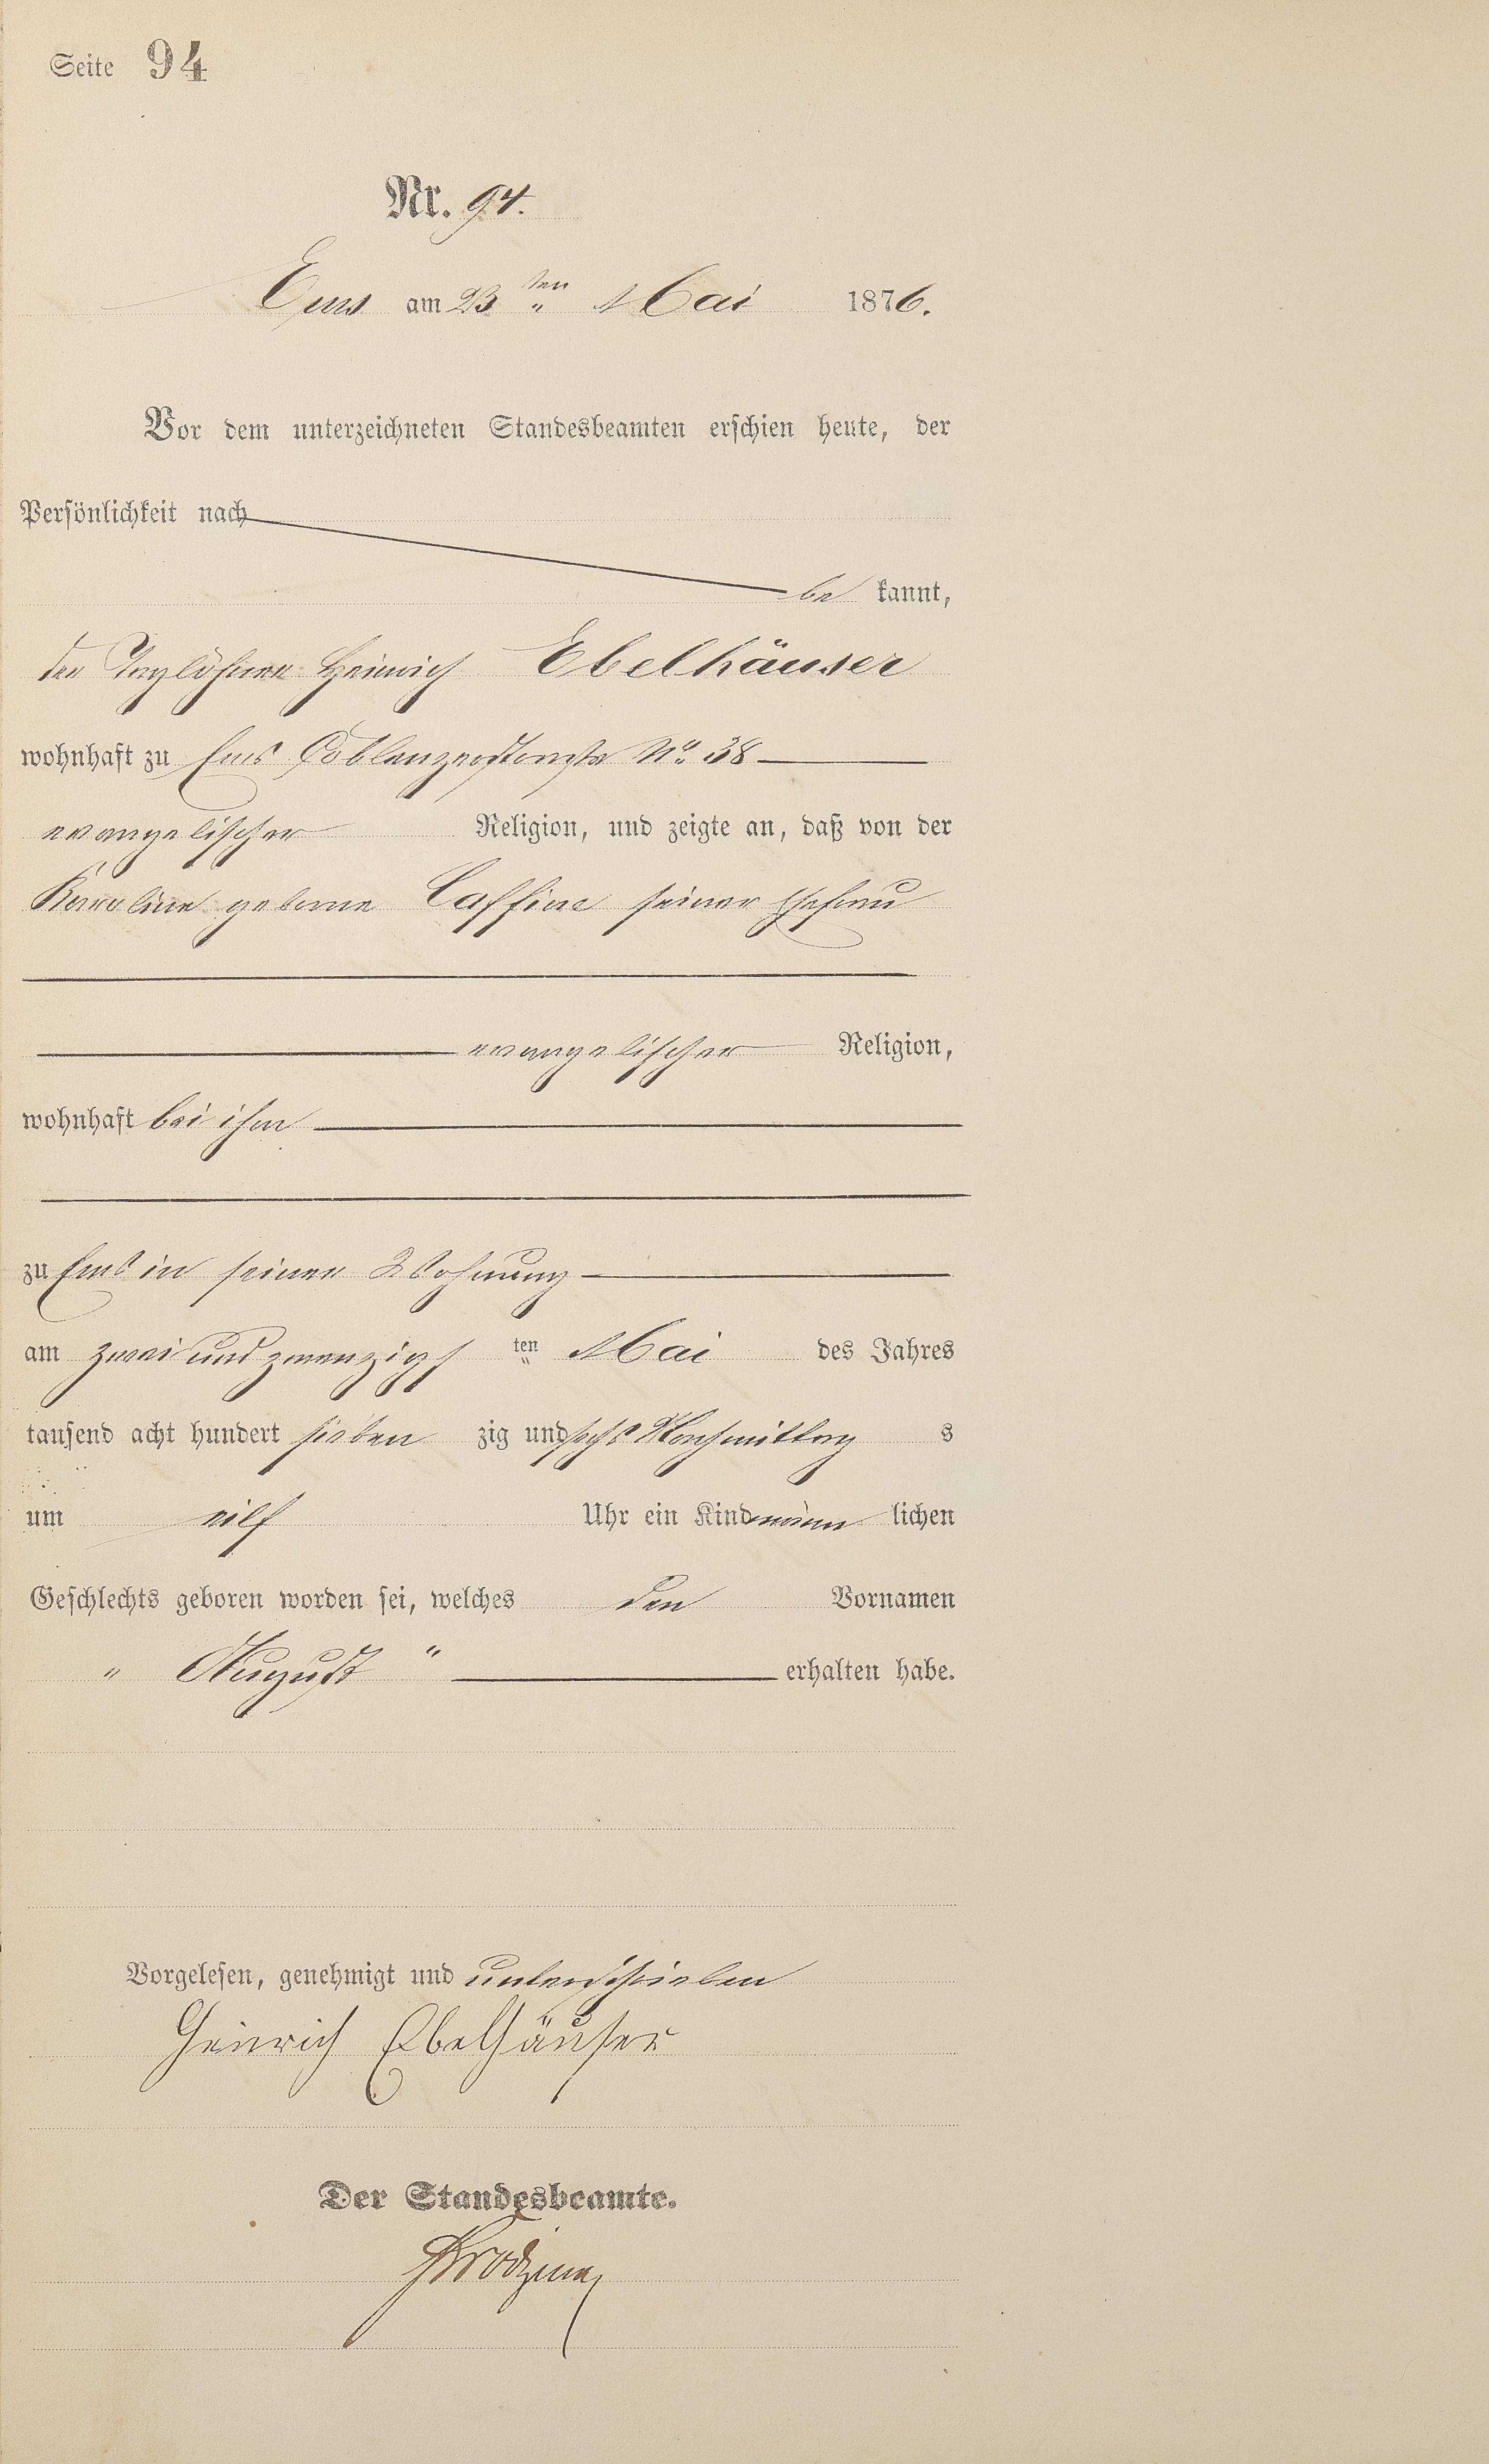 Seite 94
Nr. 94.
Ems am 23 ten Mai 1876.
Vor dem unterzeichneten Standesbeamten erschien heute, der
Persönlichkeit nach
be kannt,
der Taglöhner Heinrich Ebelhäuser
wohnhaft zu Ems Coblenzerstraße No. 38
evangelischer Religion, und zeigte an, daß von der
Karoline geborne Caffine seiner Ehefrau
evangelischer Religion,
wohnhaft bei ihm
zu Ems in seiner Wohnung
am zwei und zwanzigs ten Mai des Jahres
tausend acht hundert sieben zig und sechs Nachmittag s
um eilf Uhr ein Kind männ lichen
Geschlechts geboren worden sei, welches den Vornamen
" August " erhalten habe.
Vorgelesen, genehmigt und unterschrieben
Heinrich Ebelhäuser
Der Standesbeamte.